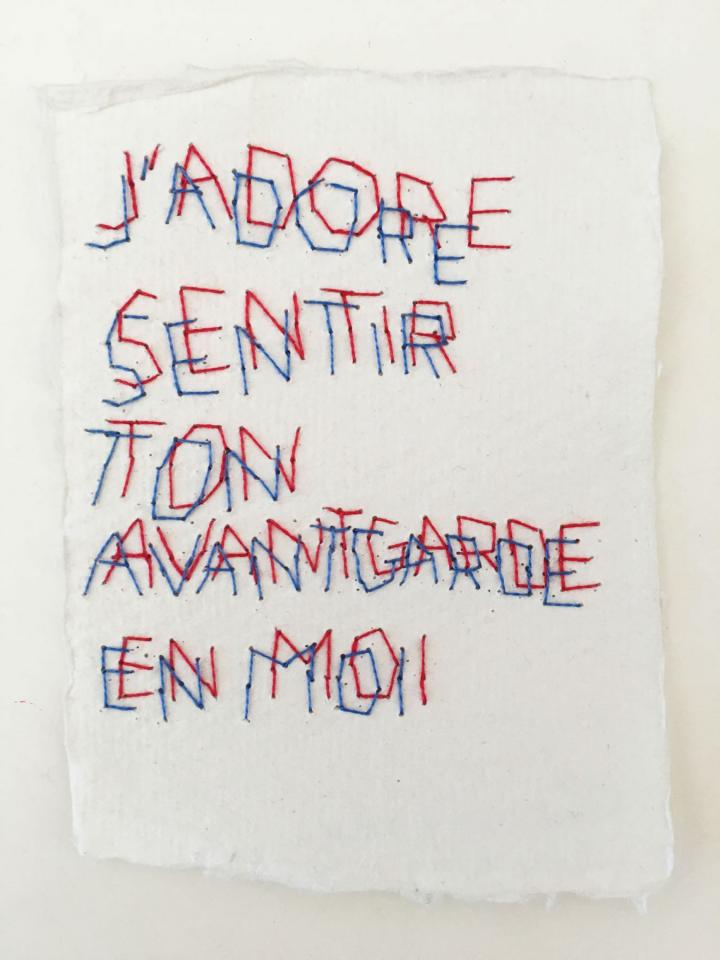 J'ADORE
SENTIR
TON
AVANTGARDE
EN MOI